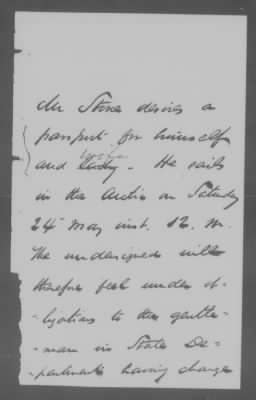 Mr Stone desires a
passport for himself
and wife
lady. He sails
in the Arctic on Saturday
24 May inst. 12. M.
The undersigned will
therefore feel under ob-
-ligations to the gentle-
-man in State De-
-partment having charge